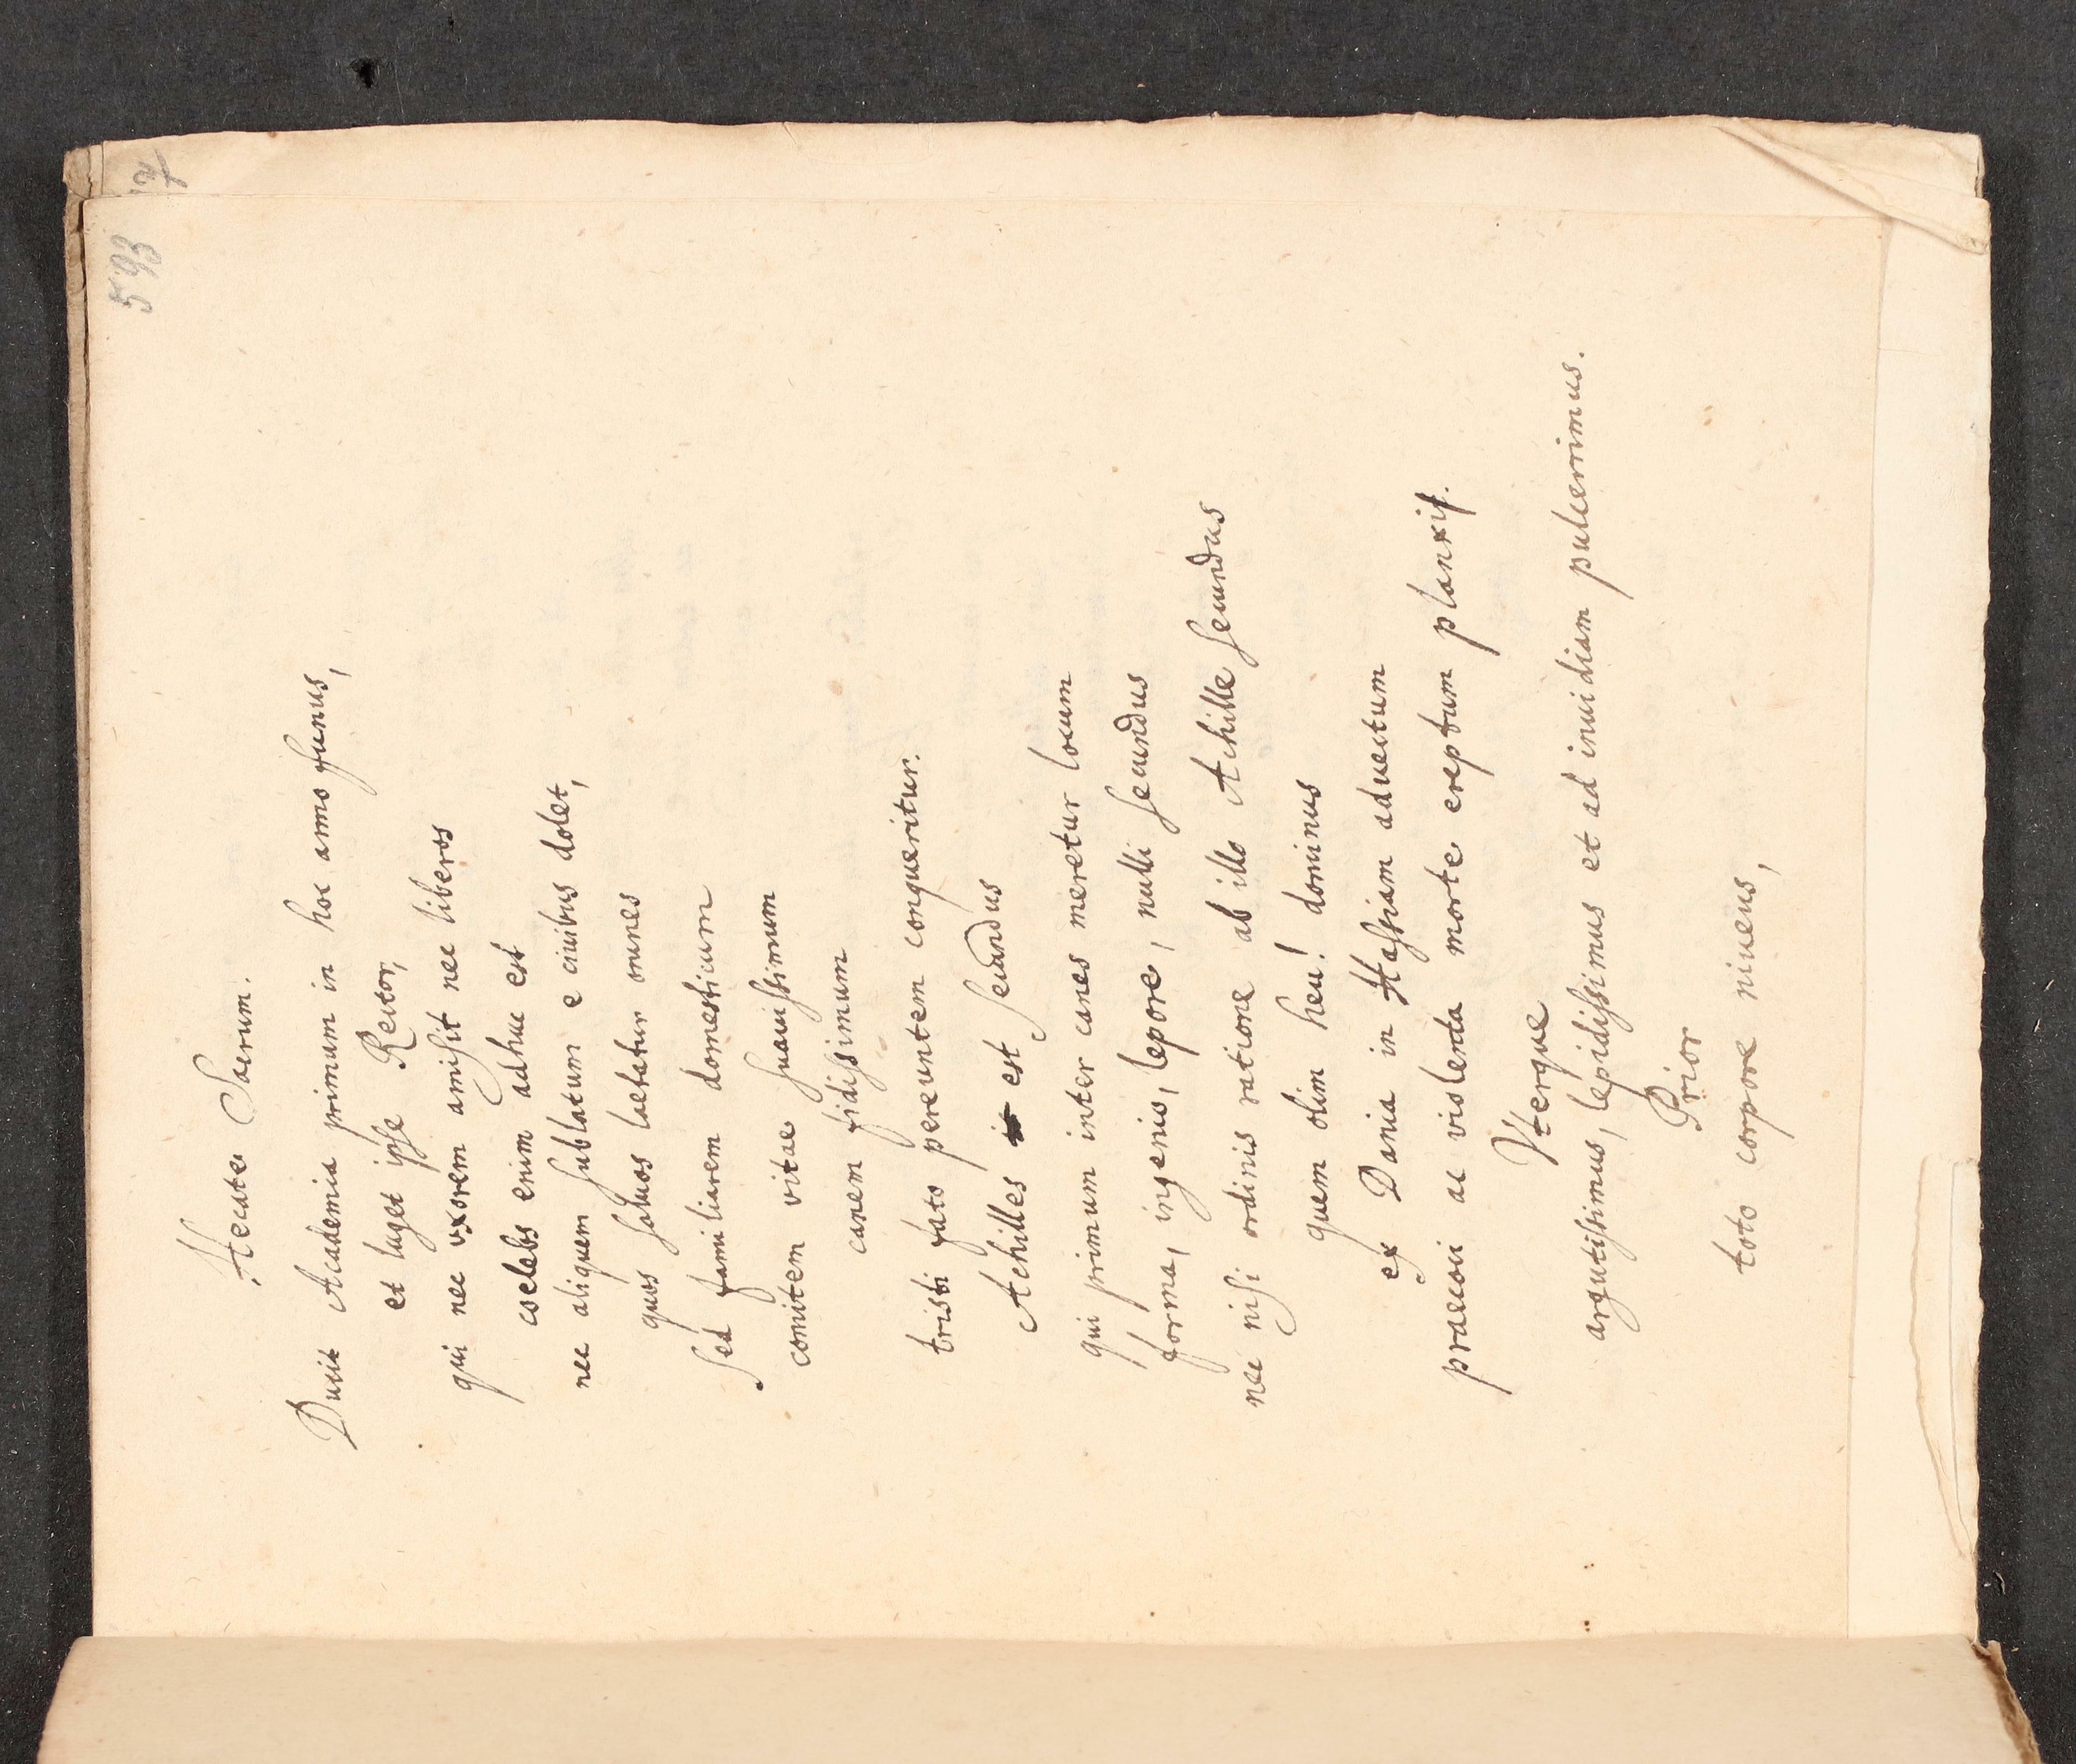 593
Hecatae Sacrum.
Ducit Academia primum in hoc anno funus,
et luget ipse Rector,
qui nec vxorem amisit nec liberos
coelebs enim adhuc est
nec aliquem sublatum e ciuibus dolet,
quos saluos laetatur omnes
Sed familiarem domesticum
comitem vitae suauissimum
canem fidissimum
tristi fato pereuntem conqueritur.
Achilles est secundus
qui primum inter canes meretur locum
forma, ingenio, lepore, nulli secundus
nec nisi ordinis ratione ab illo Achille secundus
quem olim heu! dominus
ex Dania in Hassiam aduectum
praecoci ac violenta morte ereptum planxit.
Vterque
argutissimus, lepidissimus et ad inuidiam pulcerrimus.
Prior
toto corpore niueus,